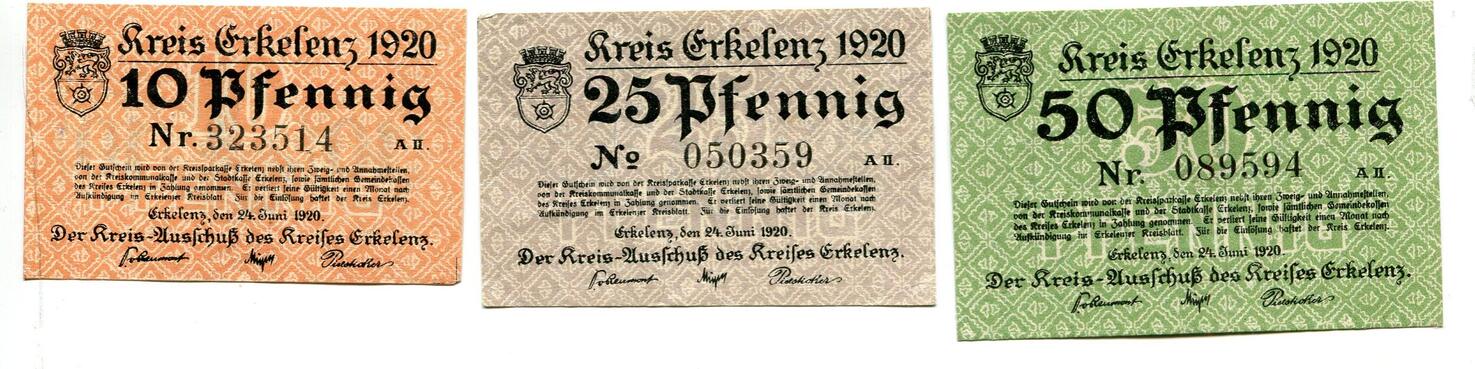 Kreis Erkelenz 1920
10 Pfennig
Nr. 323514 A II.
Dieser Gutschein wird von der Kreissparkasse Erkelenz nebst ihren Zweig- und Annahmestellen,
von der Kreiskommunalkasse und der Stadtkasse Erkelenz, sowie sämtlichen Gemeindekassen
des Kreises Erkelenz in Zahlung genommen. Er verliert seine Gültigkeit einen Monat nach
Aufkündigung im Erkelenzer Kreisblatt. Für die Einlösung haftet der Kreis Erkelenz.
Erkelenz, den 24. Juni 1920.
Der Kreis-Ausschuß des Kreises Erkelenz.
Kreis Erkelenz 1920
25 Pfennig
No 050359 A II.
Dieser Gutschein wird von der Kreissparkasse Erkelenz nebst ihren Zweig- und Annahmestellen,
von der Kreiskommunalkasse und der Stadtkasse Erkelenz, sowie sämtlichen Gemeindekassen
des Kreises Erkelenz in Zahlung genommen. Er verliert seine Gültigkeit einen Monat nach
Aufkündigung im Erkelenzer Kreisblatt. Für die Einlösung haftet der Kreis Erkelenz.
Erkelenz, den 24. Juni 1920.
Der Kreis-Ausschuß des Kreises Erkelenz.
Kreis Erkelenz 1920
50 Pfennig
Nr. 089594 A II.
Dieser Gutschein wird von der Kreissparkasse Erkelenz nebst ihren Zweig- und Annahmestellen,
von der Kreiskommunalkasse und der Stadtkasse Erkelenz, sowie sämtlichen Gemeindekassen
des Kreises Erkelenz in Zahlung genommen. Er verliert seine Gültigkeit einen Monat nach
Aufkündigung im Erkelenzer Kreisblatt. Für die Einlösung haftet der Kreis Erkelenz.
Erkelenz, den 24. Juni 1920.
Der Kreis-Ausschuß des Kreises Erkelenz.